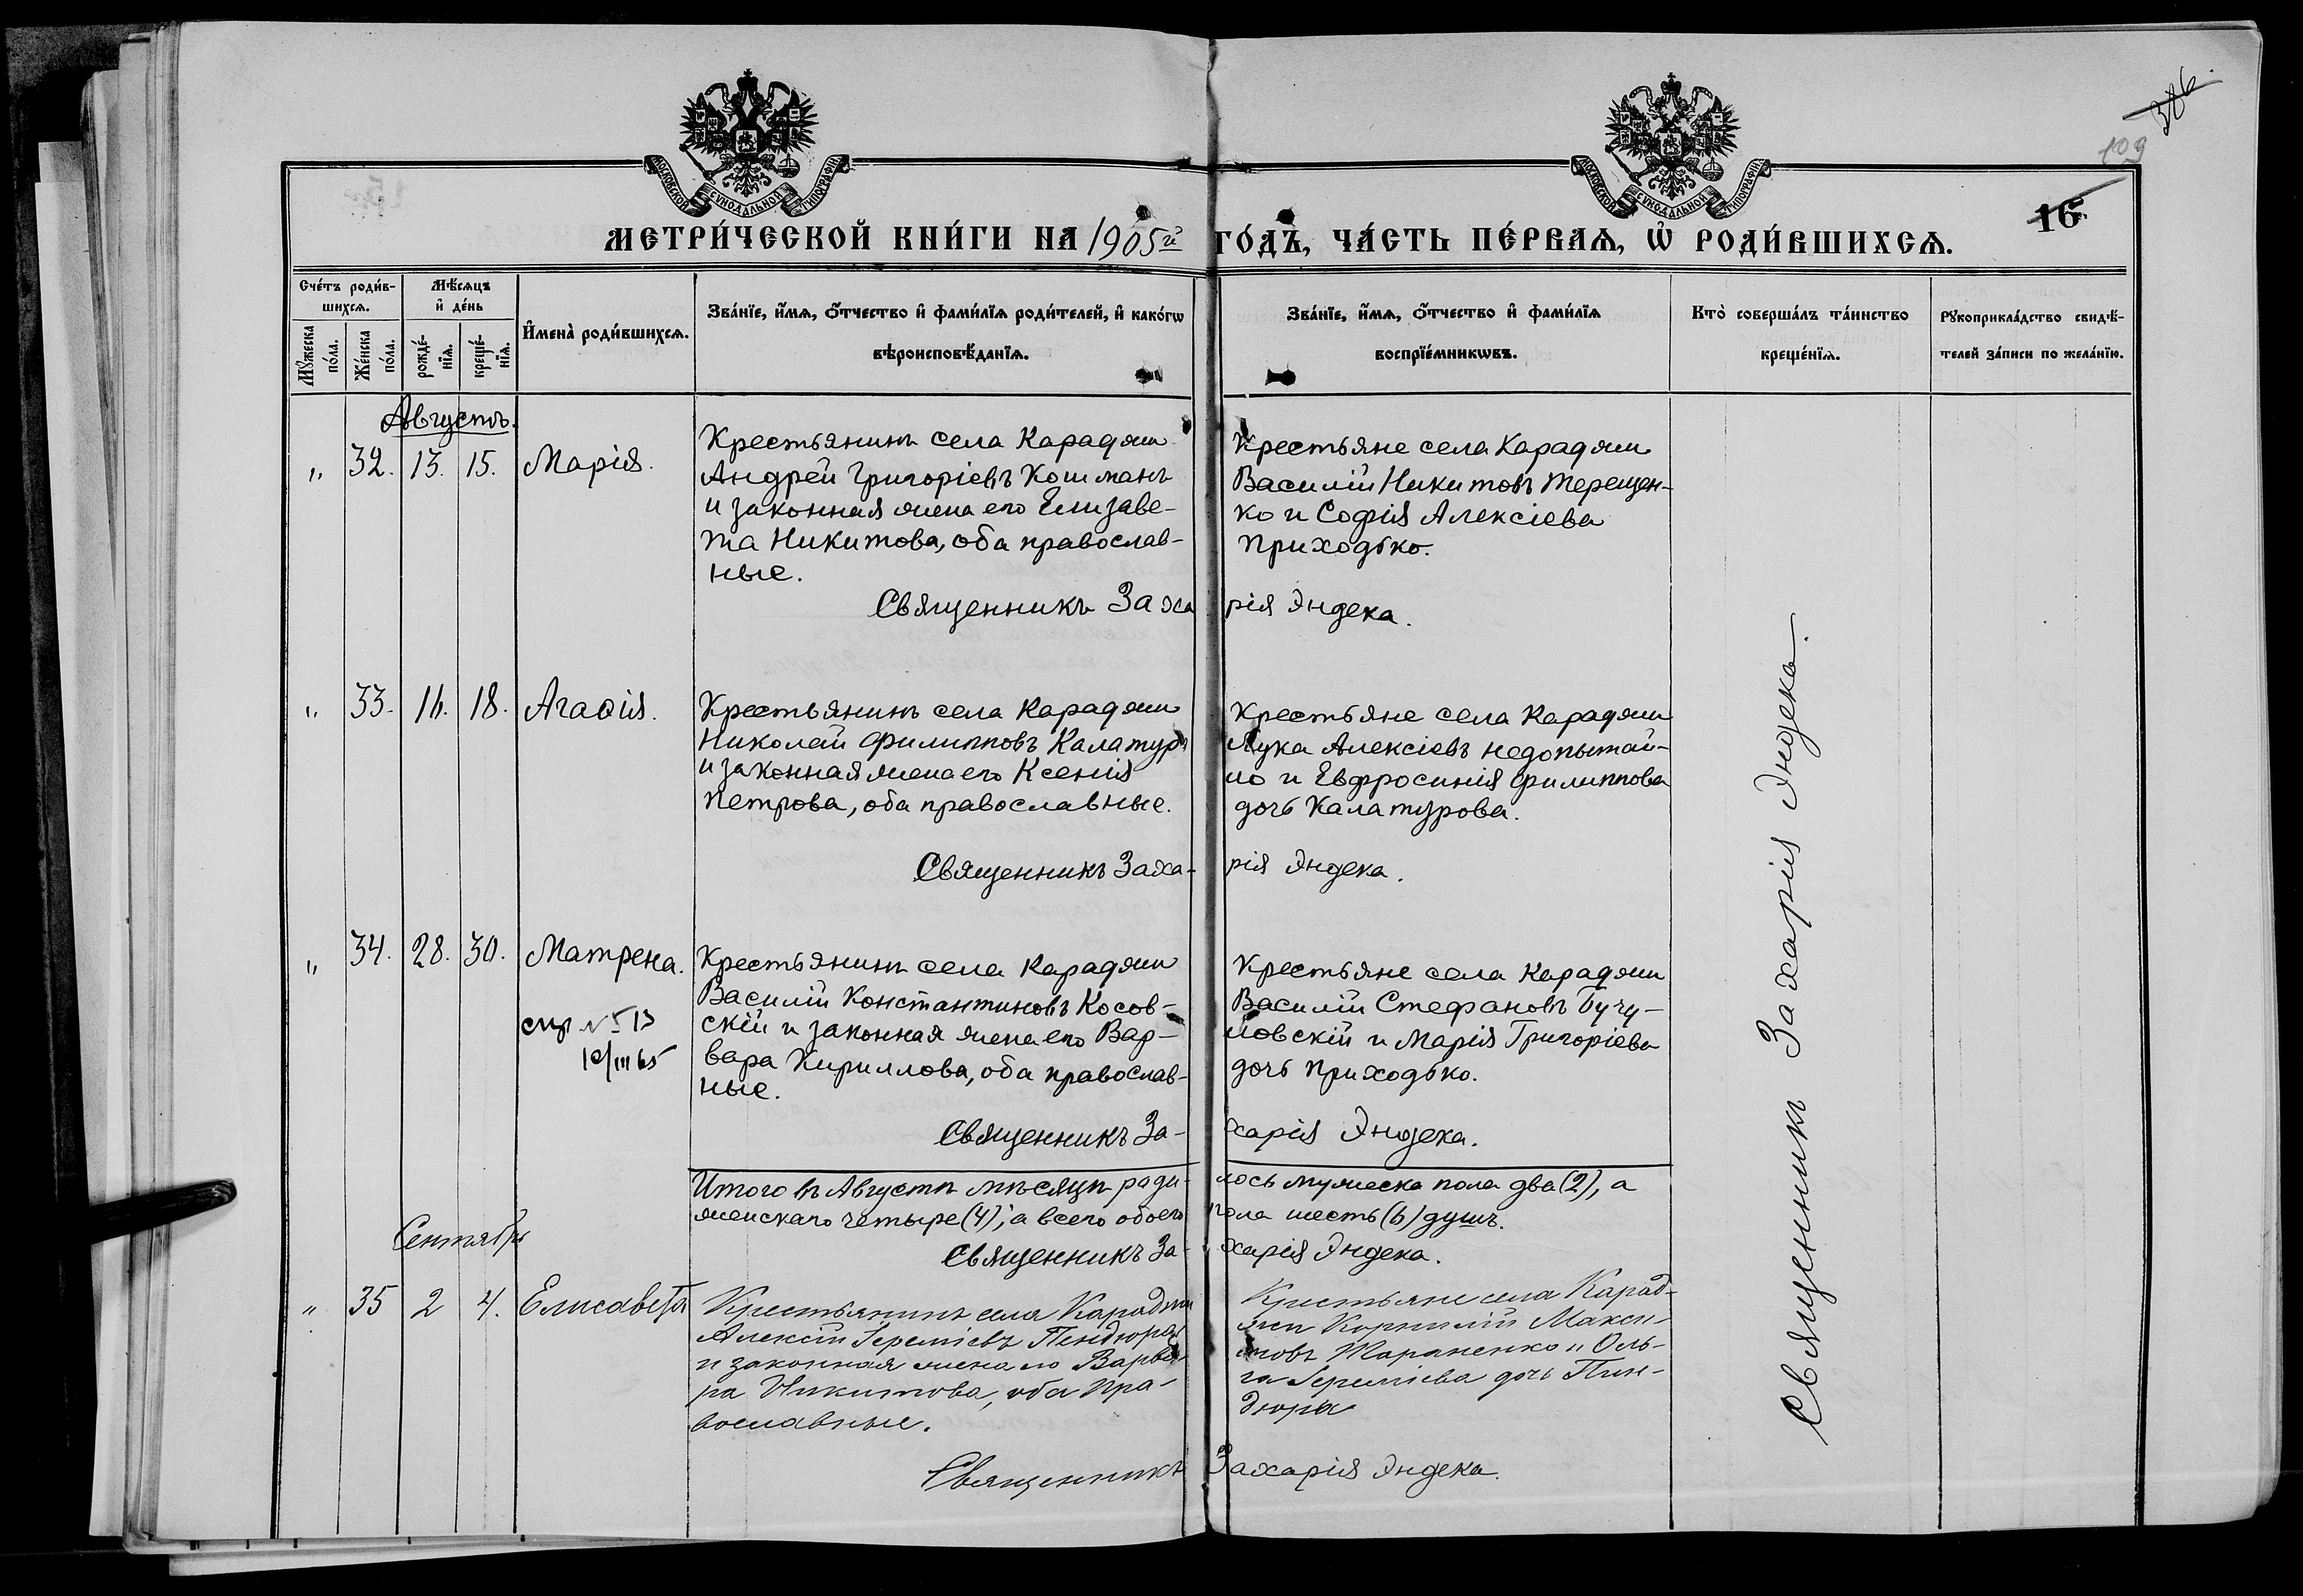 306.
109
16
МОСКОВСКОЙ СѴНОДАЛЬНОЙ ТИПОГРАФІИ
МОСКОВСКОЙ СѴНОДАЛЬНОЙ ТИПОГРАФІИ
МЕТРИ́ЧЕСКОЙ КНИ́ГИ НА 1905й ГО́ДЪ, ЧА́СТЬ ПЕ́РВАѦ, Ѡ҆ РОДИ́ВШИХСѦ.
Сче́тъ роди́в-
шихсѧ.
Мꙋ́жеска
по́ла.
Же́нска
по́ла.
Мѣ́сѧцъ
и҆ де́нь
рожде́-
нїѧ.
креще́-
нїѧ.
И҆мена̀ роди́вшихсѧ.
Зва́нїе, и҆́мѧ, ѻ҆́тчество и҆ фами́лїѧ роди́телей, и҆ како́гѡ
вѣроисповѣ́данїѧ.
Зва́нїе, и҆́мѧ, ѻ҆́тчество и҆ фами́лїѧ
воспрїе́мникѡвъ.
Кто̀ соверша́лъ та́инство
креще́нїѧ.
Рꙋкоприкла́дство свидѣ́-
телей за́писи по жела́нїю.
Августъ.
„ 32. 13. 15. Марія.
Крестьянинъ села Караджи
Андрей Григоріевъ Кошманъ
и законная жена его Елизаве-
та Никитова, оба православ-
ные.
Крестьяне села Караджи
Василій Никитовъ Терещен-
ко и Софія Алексіева
Приходько.
Священникъ Захарія Яндека.
„ 33. 16. 18. Агаѳія.
Крестьянинъ села Караджи
Николай Филипповъ Калатуръ
и законная жена его Ксенія
Петрова, оба православные.
Крестьяне села Караджи
Лука Алексіевъ Недопытай-
ло и Евфросинія Филиппова
дочь Калатурова.
Священникъ Заха-рія Яндека.
„ 34. 28. 30. Матрена.
спр № 513
10/III 65
Крестьянинъ села Караджи
Василій Константиновъ Косов-
скій и законная жена его Вар-
вара Кириллова, оба православ-
ные.
Крестьяне села Караджи
Василій Стефановъ Бучу-
ловскій и Марія Григоріева
дочь Приходько.
Священникъ За-харія Яндека.
Итого въ Августѣ мѣсяцѣ роди-лось мужеска пола два (2), а
женскаго четыре (4); а всего обоего пола шесть (6) душъ.
Священникъ За-харія Яндека.
Сентябрь
„ 35 2 4. Елисавета
Крестьянинъ села Караджи
Алексій Іереміевъ Пендюра
и законная жена его Варва-
ра Никитова, оба пра-
вославные.
Крестьяне села Карад-
жи Корнилій Макси-
мовъ Тараненко и Оль-
га Іереміева дочь Пин-
дюра
Священникъ Захарія Яндека.
Священникъ Захарія Яндека.